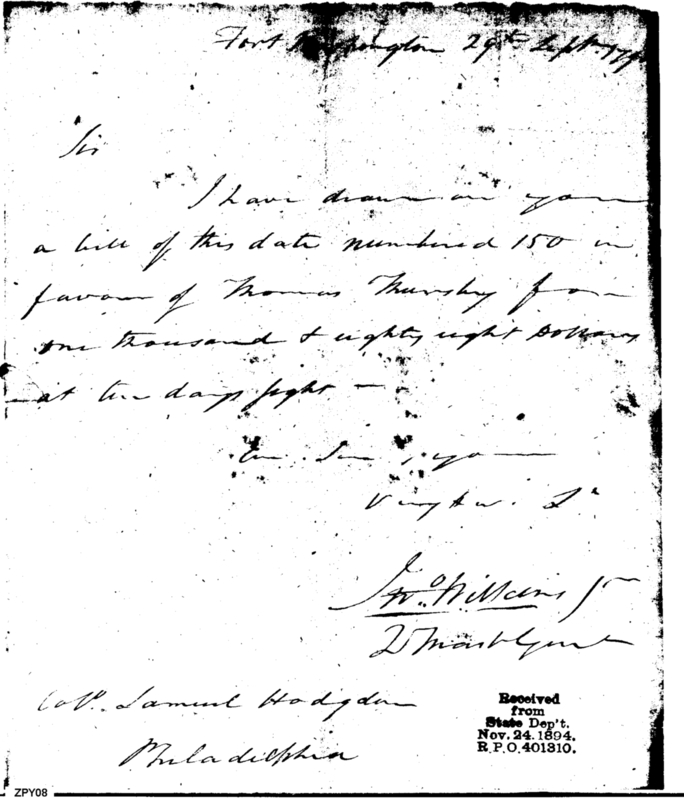 Fort Washington 29th Sept
Sir
I have drawn on you
a bill of this date numbered 150 in
favour of Thomas Thursby for
one thousand & eighty eight Dollars
at ten days sight —
I am Sir, your
Very Hu. St
Jno. Wilkins Jr
Qr Mast Genl
Colo. Samuel Hodgdon
Philadelphia
Received
from
State Dep't.
Nov. 24. 1894.
R.P.O. 401310.
ZPY08